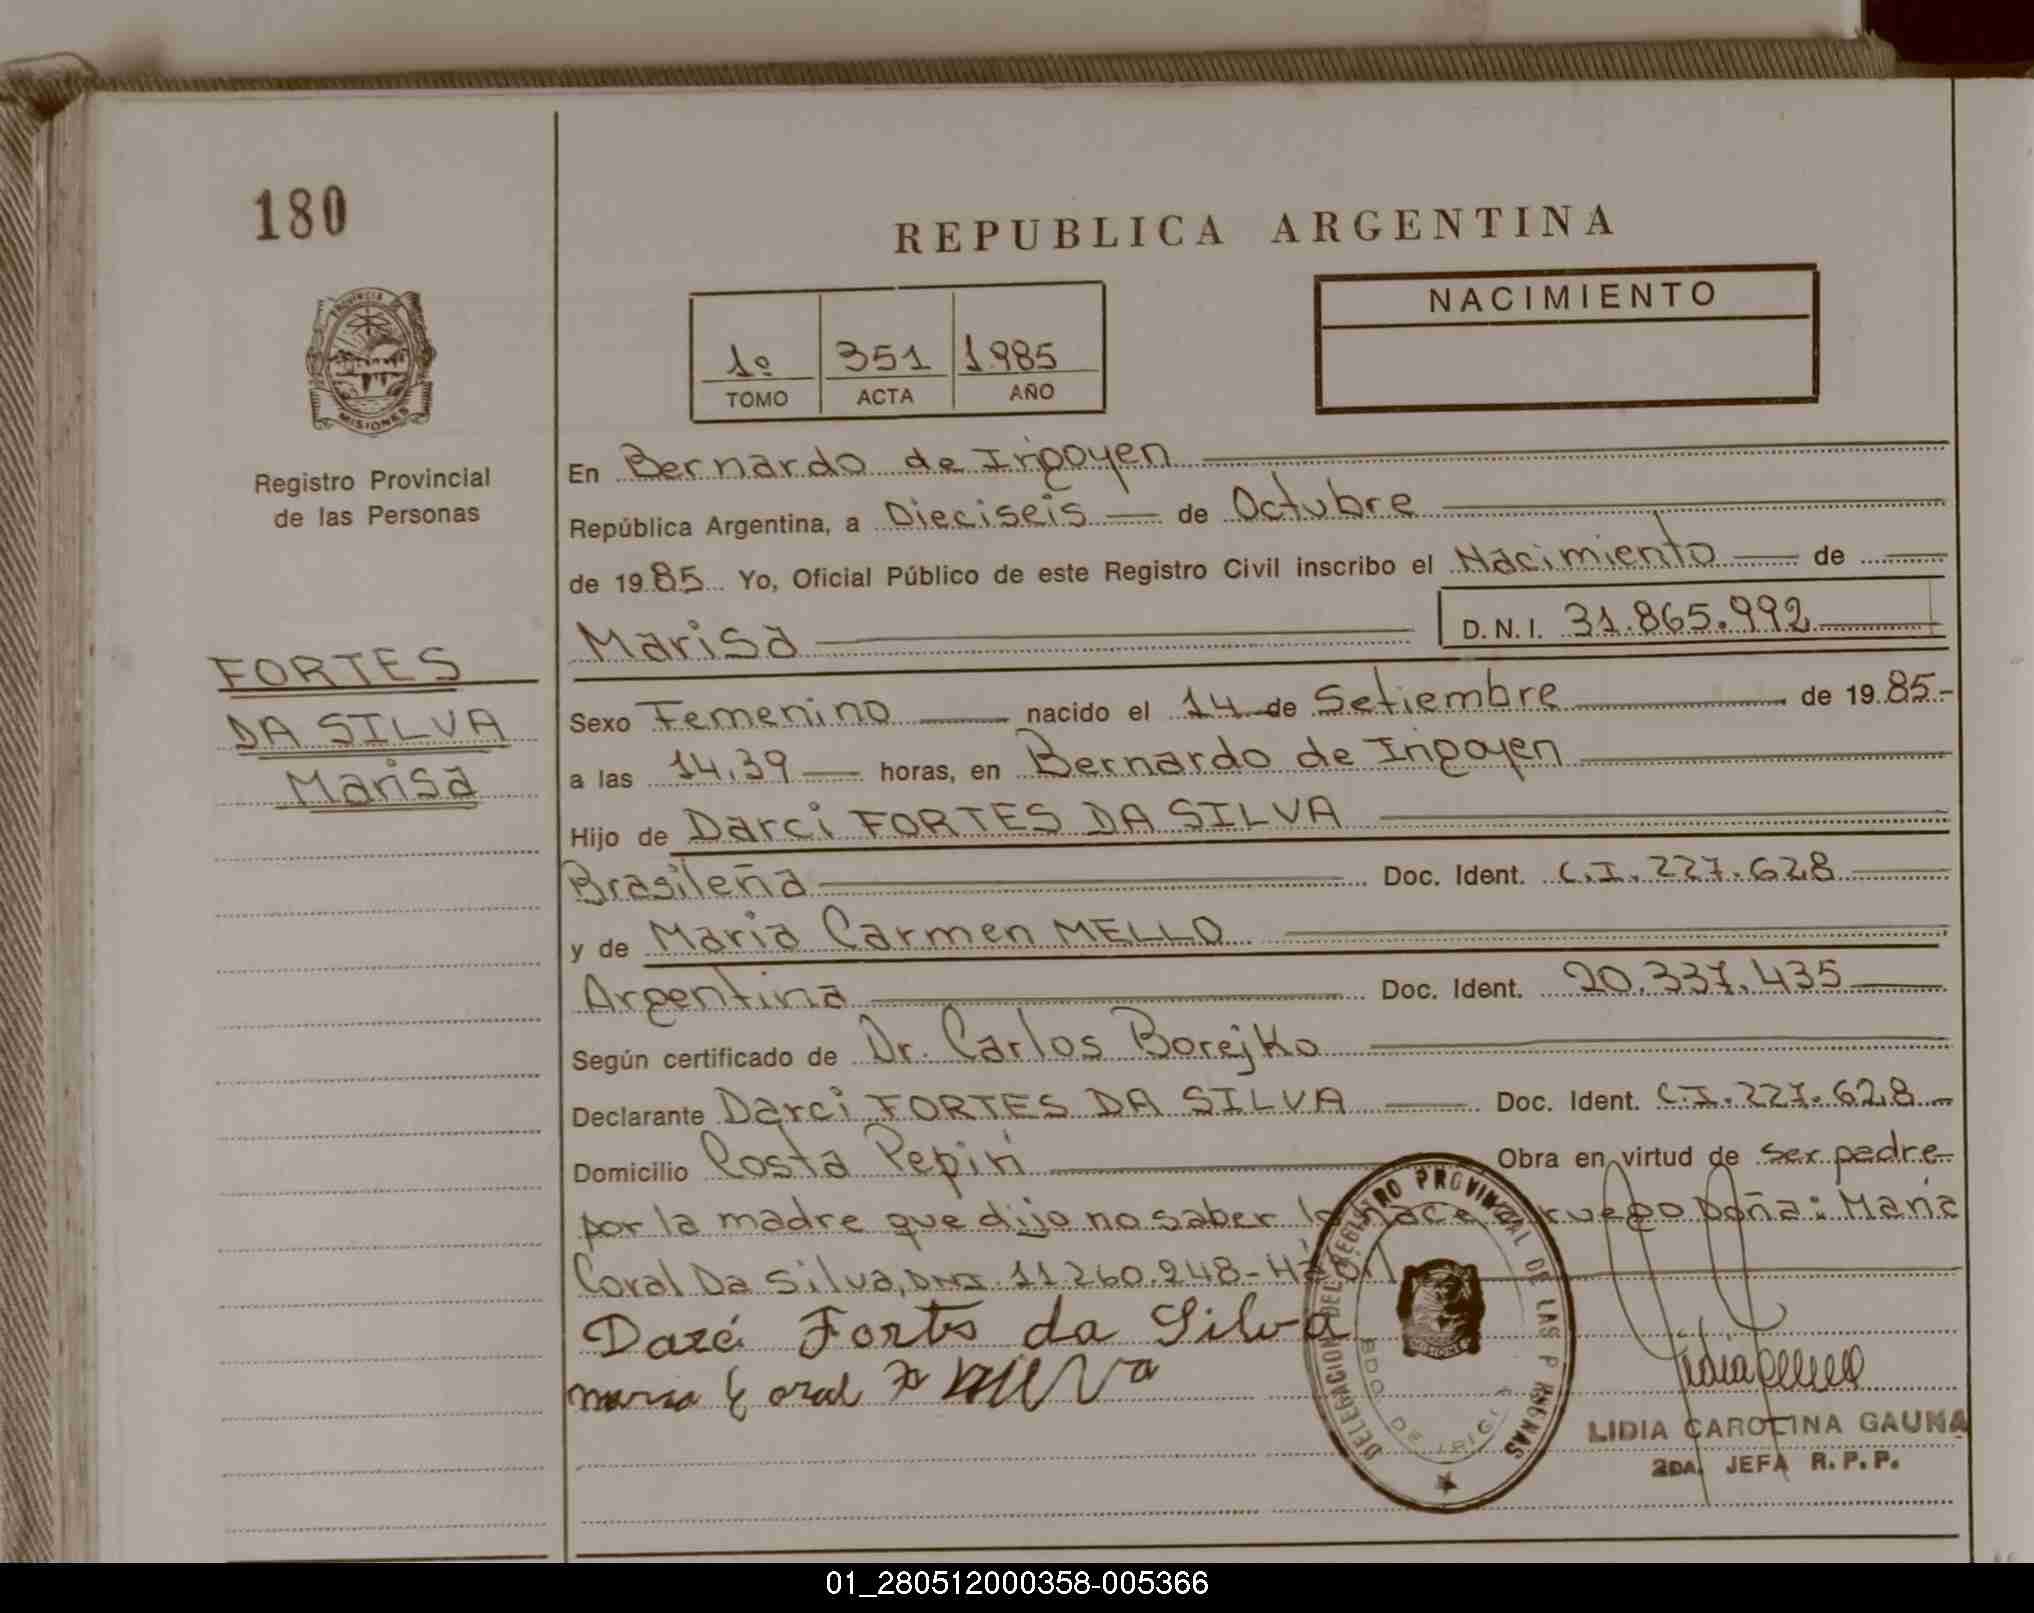 180
REPUBLICA ARGENTINA
PROVINCIA
MISIONES
Registro Provincial
de las Personas
1º 351 1.985
TOMO ACTA AÑO
NACIMIENTO
FORTES
DA SILVA
Marisa
En Bernardo de Irigoyen
República Argentina, a Dieciseis de Octubre
de 1985 Yo, Oficial Público de este Registro Civil inscribo el Nacimiento de
Marisa D.N.I. 31.865.992
Sexo Femenino nacido el 14 de Setiembre de 1985.-
a las 14.39 horas, en Bernardo de Irigoyen
Hijo de Darci FORTES DA SILVA
Brasileña Doc. Ident. C.I. 227.628
y de Maria Carmen MELLO
Argentina Doc. Ident. 20.337.435
Según certificado de Dr. Carlos Borejko
Declarante Darci FORTES DA SILVA Doc. Ident. C.I. 227.628
Domicilio Costa Pepiri Obra en virtud de ser padre
por la madre que dijo no saber lo hace ruego Doña: Maria
Coral Da Silva, DNI. 11.260.248-
Darci Fortes da Silva
DELEGACION DEL REGISTRO PROVINCIAL DE LAS PERSONAS
BDO DE IRIGO
MISIONES
LIDIA CAROLINA GAUNA
2DA. JEFA R.P.P.
01_280512000358-005366